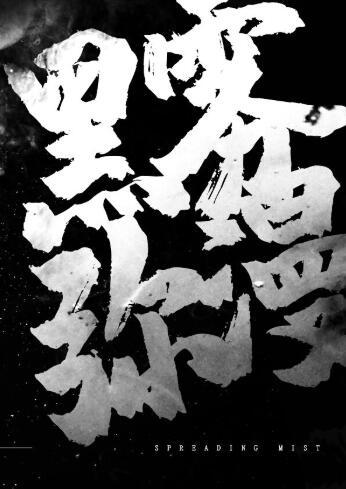 黑雾
弥漫
SPREADING MIST